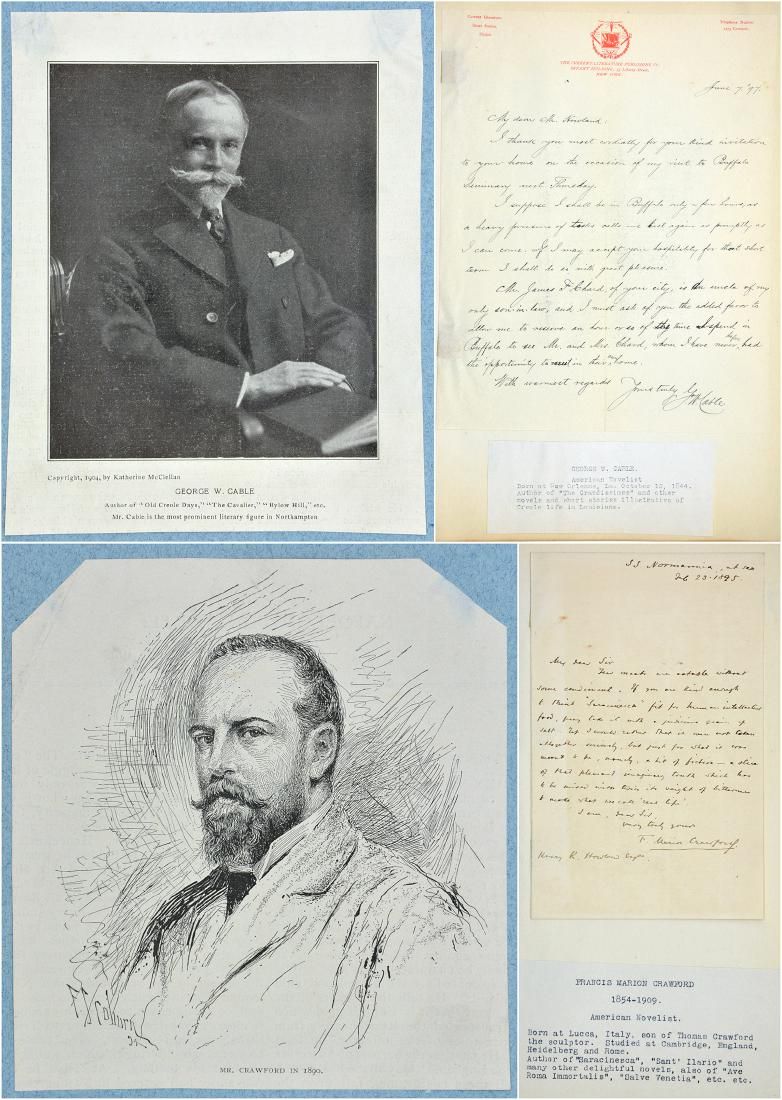 Copyright, 1904, by Katherine McClellan
GEORGE W. CABLE
Author of "Old Creole Days," "The Cavalier," "Bylow Hill," etc.
Mr. Cable is the most prominent literary figure in Northampton
Current Literature,
THE CURRENT LITERATURE PUBLISHING CO.
BRYANT BUILDING, 55 Liberty Street,
NEW YORK.
June 7, '97.
My dear Mr. Howland:
I thank you most cordially for your kind invitation
to your home on the occasion of my visit to Buffalo
Seminary next Thursday.
I suppose I shall be in Buffalo only a few hours, as
a heavy pressure of tasks calls me back again as promptly as
I can come. If I may accept your hospitality for that short
term I shall do so with great pleasure.
Mr. James F. Chard, of your city, is an uncle of my
only son-in-law, and I must ask of you the added favor to
allow me to reserve an hour or so of the time I spend in
Buffalo to see Mr. and Mrs. Chard, whom I have never before had
the opportunity to meet in their own home.
With warmest regards
Yours truly,
G W Cable
GEORGE W. CABLE.
American Novelist
Born at New Orleans, La. October 12, 1844.
Author of "The Grandissimes" and other
novels and short stories illustrative of
Creole life in Louisiana.
MR. CRAWFORD IN 1890.
S.S. Normannia, at sea
Feb 23. 1895
My dear Sir
Few meats are eatable without
some condiment. If you are kind enough
to think 'Saracinesca' fit for human intellectual
food, pray take it with a judicious grain of
salt. I would rather that it were not taken
altogether seriously, but just for what it was
meant to be, namely, a bit of fiction – a slice
of that pleasant imaginary truth which has
to be mixed with its weight of bitterness
to make what we call 'real life'.
I am, dear Sir,
very truly yours
F. Marion Crawford
Henry R. Howland Esqre.
FRANCIS MARION CRAWFORD
1854-1909.
American Novelist.
Born at Lucca, Italy, son of Thomas Crawford
the sculptor. Studied at Cambridge, England,
Heidelberg and Rome.
Author of "Saracinesca", "Sant' Ilario" and
many other delightful novels, also of "Ave
Roma Immortalis", "Salve Venetia", etc. etc.